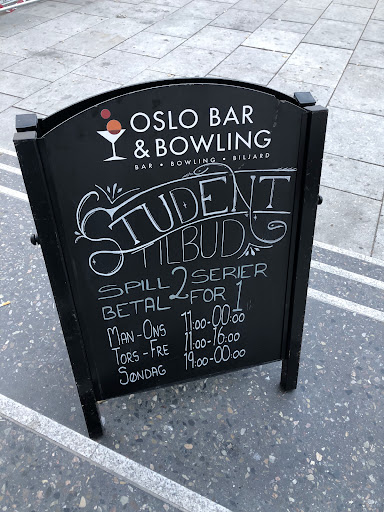 OSLO BAR
& BOWLING
BAR • BOWLING • BILJARD
STUDENT
TILBUD
SPILL 2 SERIER
BETAL FOR 1
MAN-ONS 11:00-00:00
TORS-FRE 11:00-16:00
SØNDAG 19:00-00:00